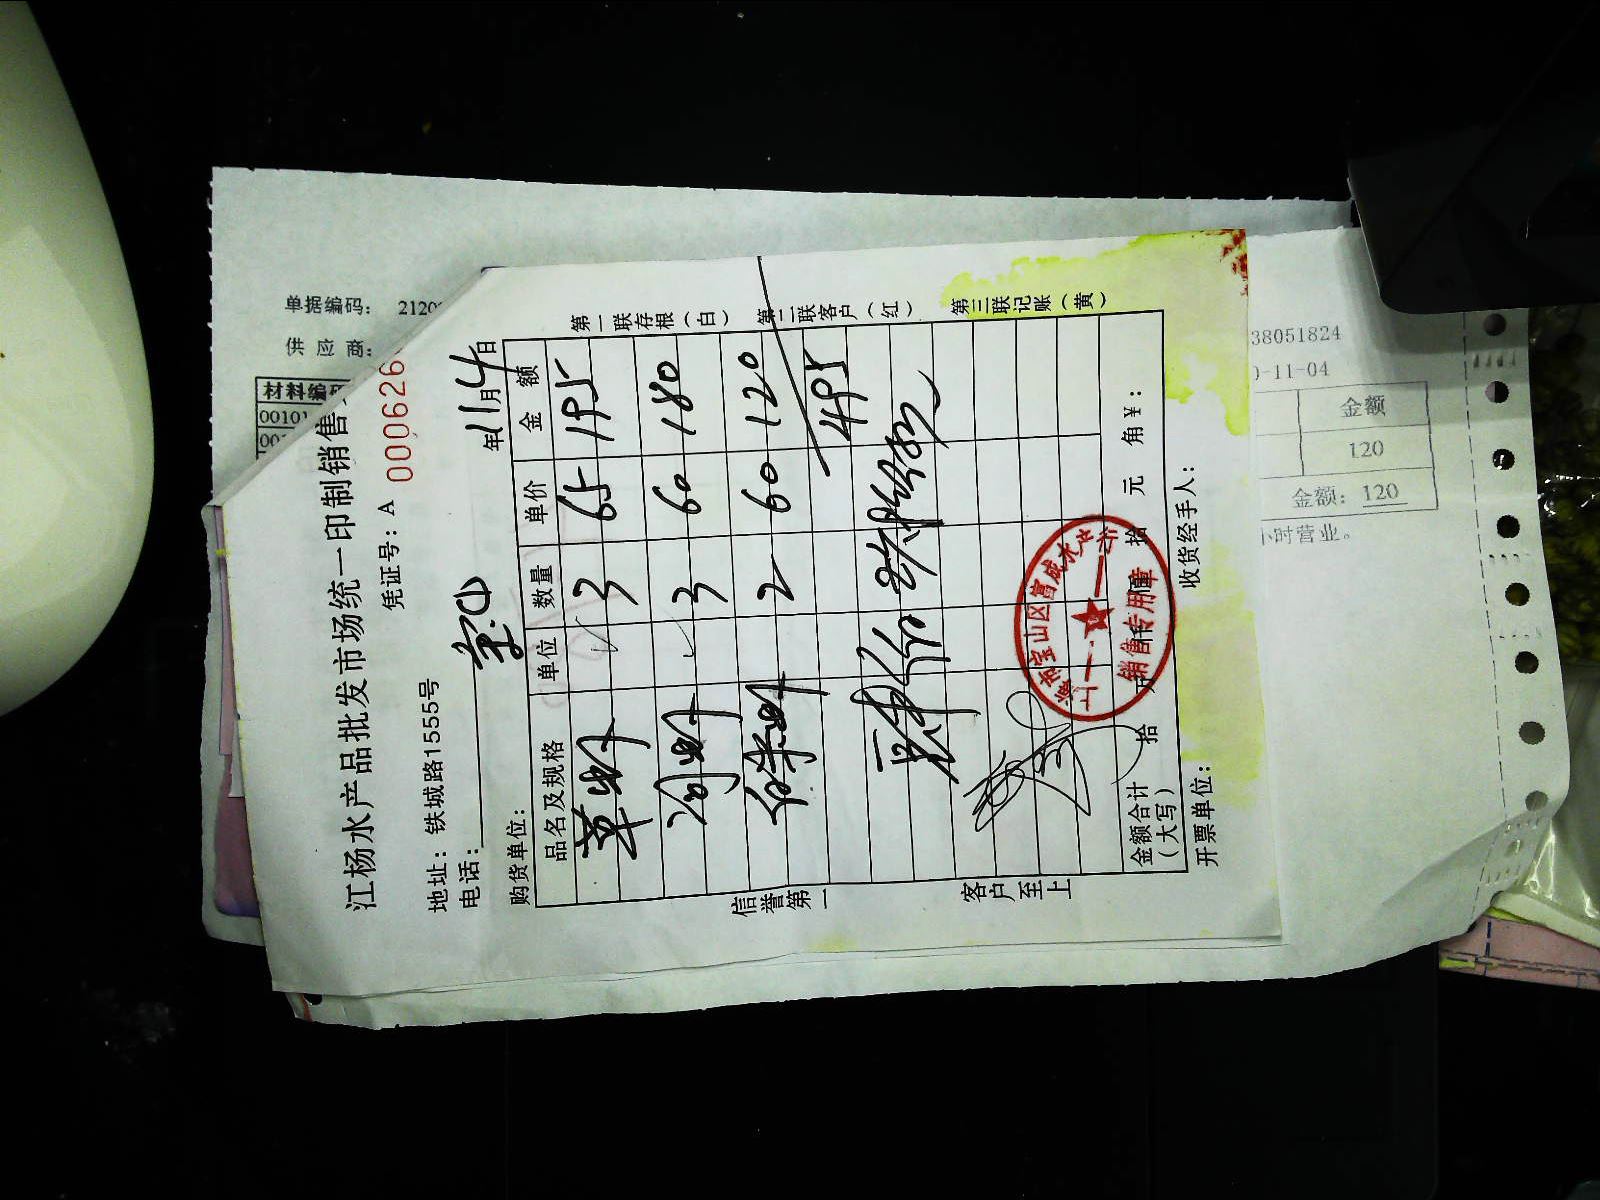 单据编码: 2120
供应商:
材料编码
00101
江杨水产品批发市场统一印制销售
凭证号: A 000626
地址: 铁城路1555号
电话:
年11月4日
购货单位:
品名及规格 单位 数量 单价 金额
草虾 3 65 195
河虾 3 60 180
白米虾 2 60 120
495
金额合计(大写) 拾 万 仟 佰 拾 元 角 ¥:
开票单位: 收货经手人:
信誉第一
客户至上
第一联存根(白)
第二联客户(红)
第三联记账(黄)
上海市宝山区富成水产行
销售专用章
38051824
-11-04
金额
120
金额: 120
小时营业。